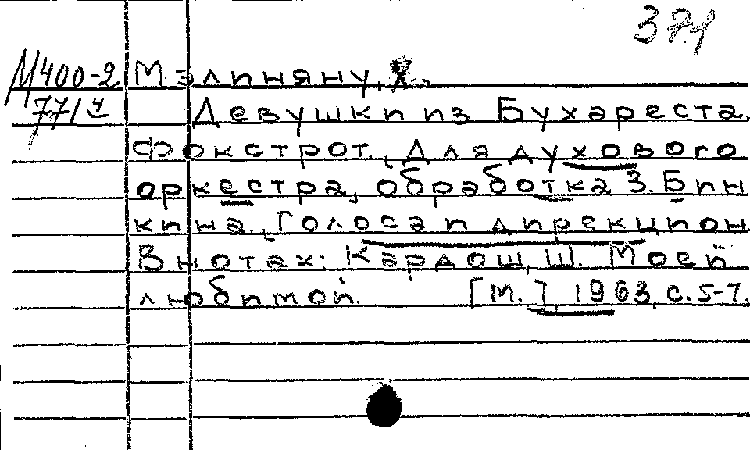 371
М400-2 Мэлиняну, Х.
771 Девушки из Бухареста.
Фокстрот. Для духового
оркестра, обработка З. Бин
кина. [Голоса и дирекцион
В нотах: Кардош, Ш. Моей
любимой. [М.], 1963, с. 5-7.